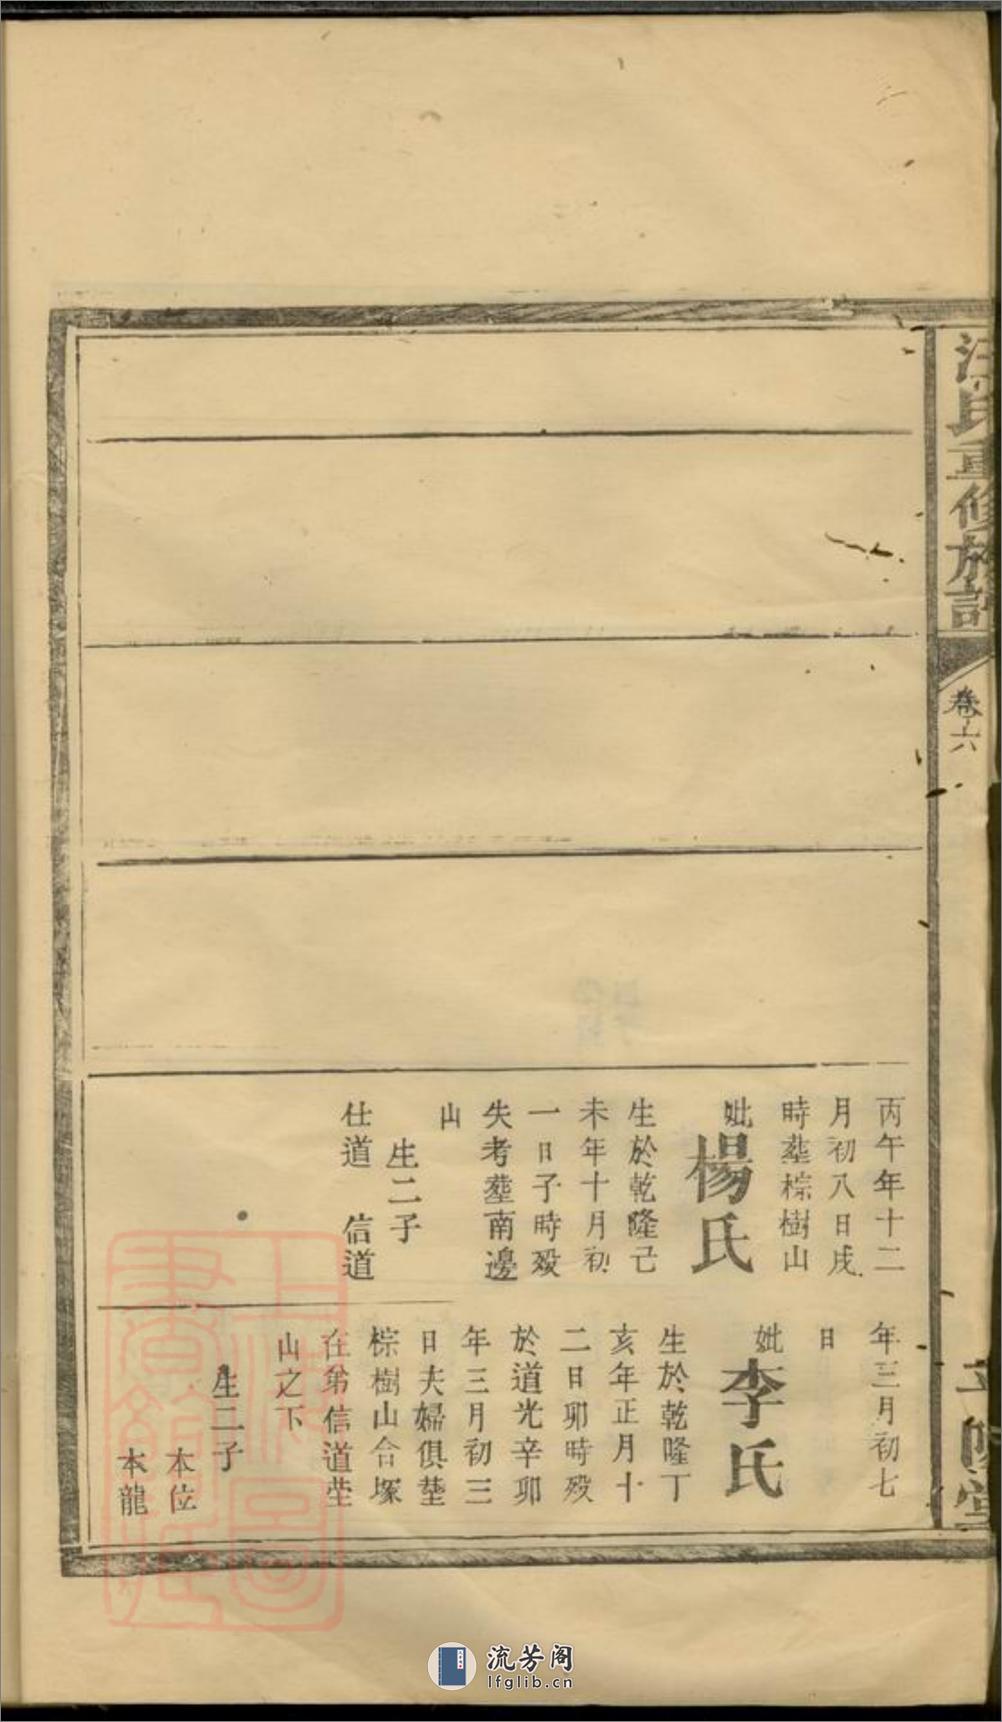 汪氏重修族譜
卷六
丙午年十二
月初八日戌
時塟棕樹山
妣楊氏
生於乾隆己
未年十月初
一日子時歿
失考塟南邊
山
生二子
仕道　信道
年三月初七
日
妣李氏
生於乾隆丁
亥年正月十
二日卯時歿
於道光辛卯
年三月初三
日夫婦俱塟
棕樹山合塚
在弟信道塋
山之下
生二子
本位
本龍
上海圖書館藏
流芳阁
lfglib.cn